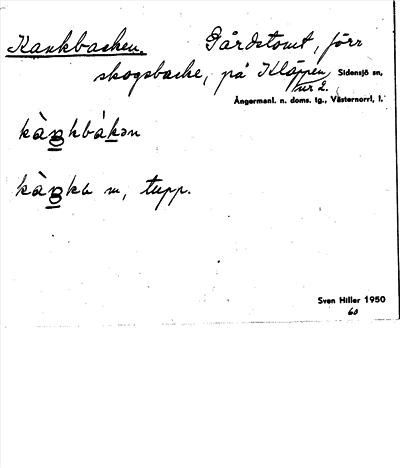 Kankbacken. Gårdstomt, förr
skogsbacke, på Kläppen Sidensjö sn,
nr 2.
Ångermanl. n. doms. lg., Västernorrl. l.
kàŋkbákən
kàŋka m, tupp.
Sven Hiller 1950
60